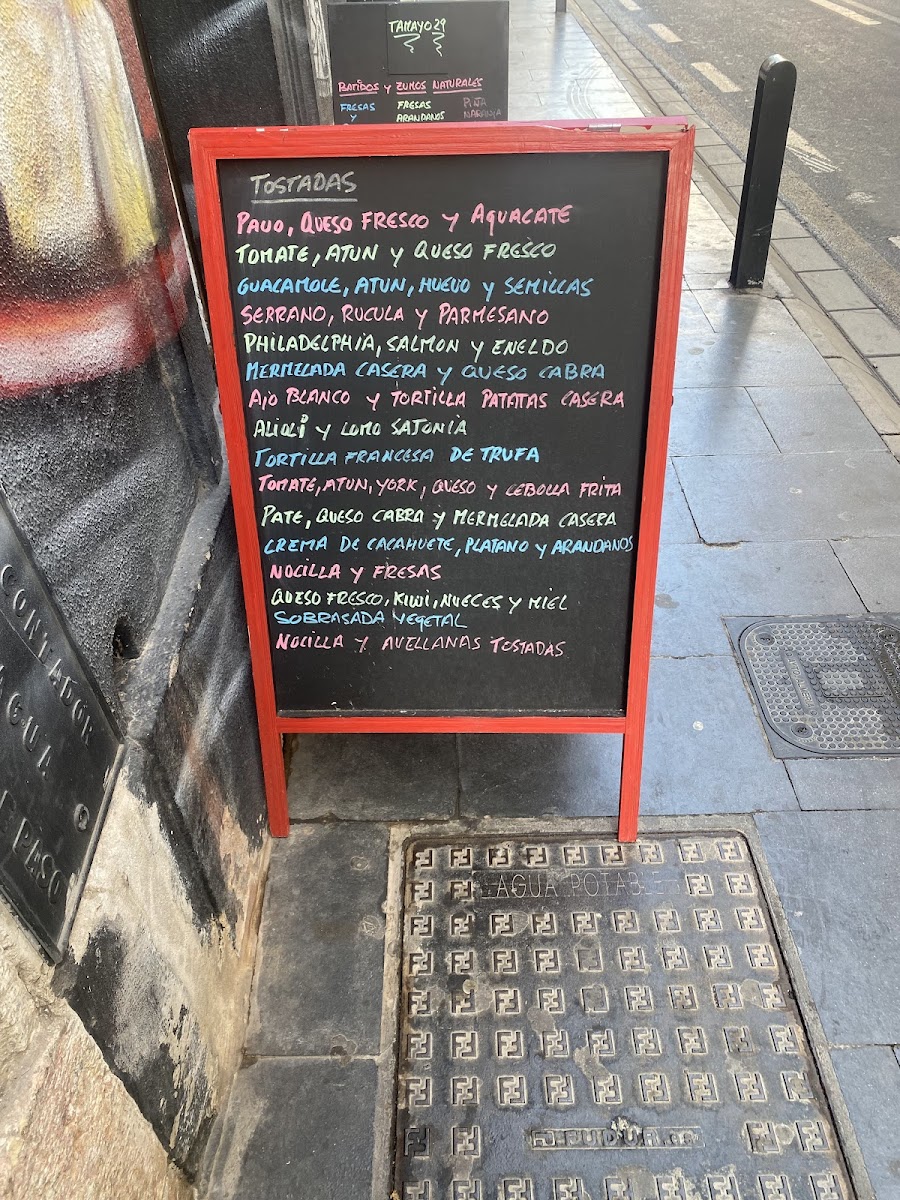 TAMAYO 29
BATIDOS Y ZUMOS NATURALES
FRESAS FRESAS PIÑA
Y ARANDANOS NARANJA
TOSTADAS
PAVO, QUESO FRESCO Y AGUACATE
TOMATE, ATUN Y QUESO FRESCO
GUACAMOLE, ATUN, HUEVO Y SEMILLAS
SERRANO, RUCULA Y PARMESANO
PHILADELPHIA, SALMON Y ENELDO
MERMELADA CASERA Y QUESO CABRA
AJO BLANCO Y TORTILLA PATATAS CASERA
ALIOLI Y LOMO SAJONIA
TORTILLA FRANCESA DE TRUFA
TOMATE, ATUN, YORK, QUESO Y CEBOLLA FRITA
PATE, QUESO CABRA Y MERMELADA CASERA
CREMA DE CACAHUETE, PLATANO Y ARANDANOS
NOCILLA Y FRESAS
QUESO FRESCO, KIWI, NUECES Y MIEL
SOBRASADA VEGETAL
NOCILLA Y AVELLANAS TOSTADAS
CONTADOR
AGUA
PASO
AGUA POTABLE